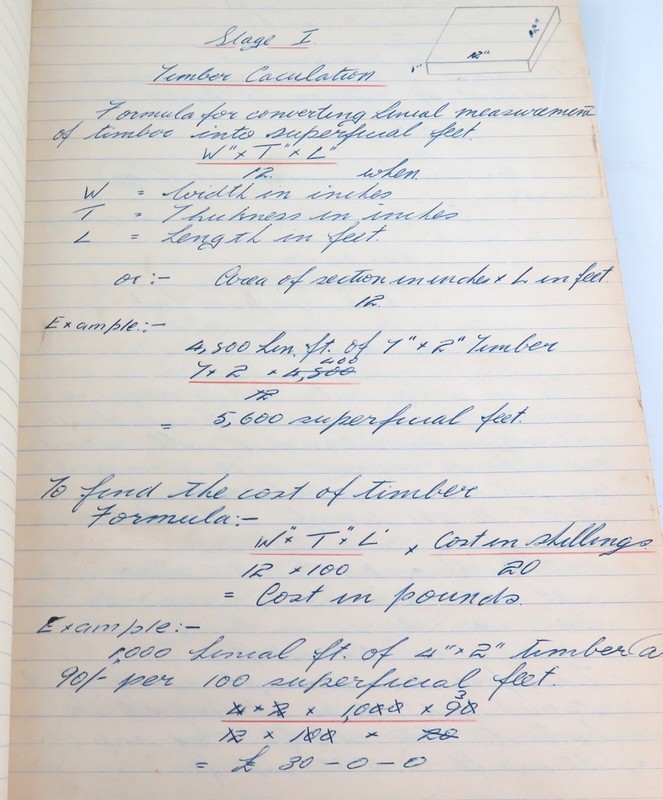 Stage I.
12"
1"
Timber Caculation
Formula for converting lineal measurement
of timber into superficial feet.
W" × T" × L"
12. when
W = Width in inches
T = Thickness in inches
L = Length in feet.
or :- Area of section in inches × L in feet.
12.
Example:-
4,800 Lin. ft. of 7" × 2" Timber
400
7 × 2 × 4,800
12
= 5,600 superficial feet.
To find the cost of timber
Formula:-
W" × T" × L' × Cost in shillings
12 × 100 20
= Cost in pounds.
Example:-
1,000 Lineal ft. of 4" × 2" timber @
90/- per 100 superficial feet.
3
4 × 2 × 1,000 × 90
12 × 100 × 20
= £ 30-0-0